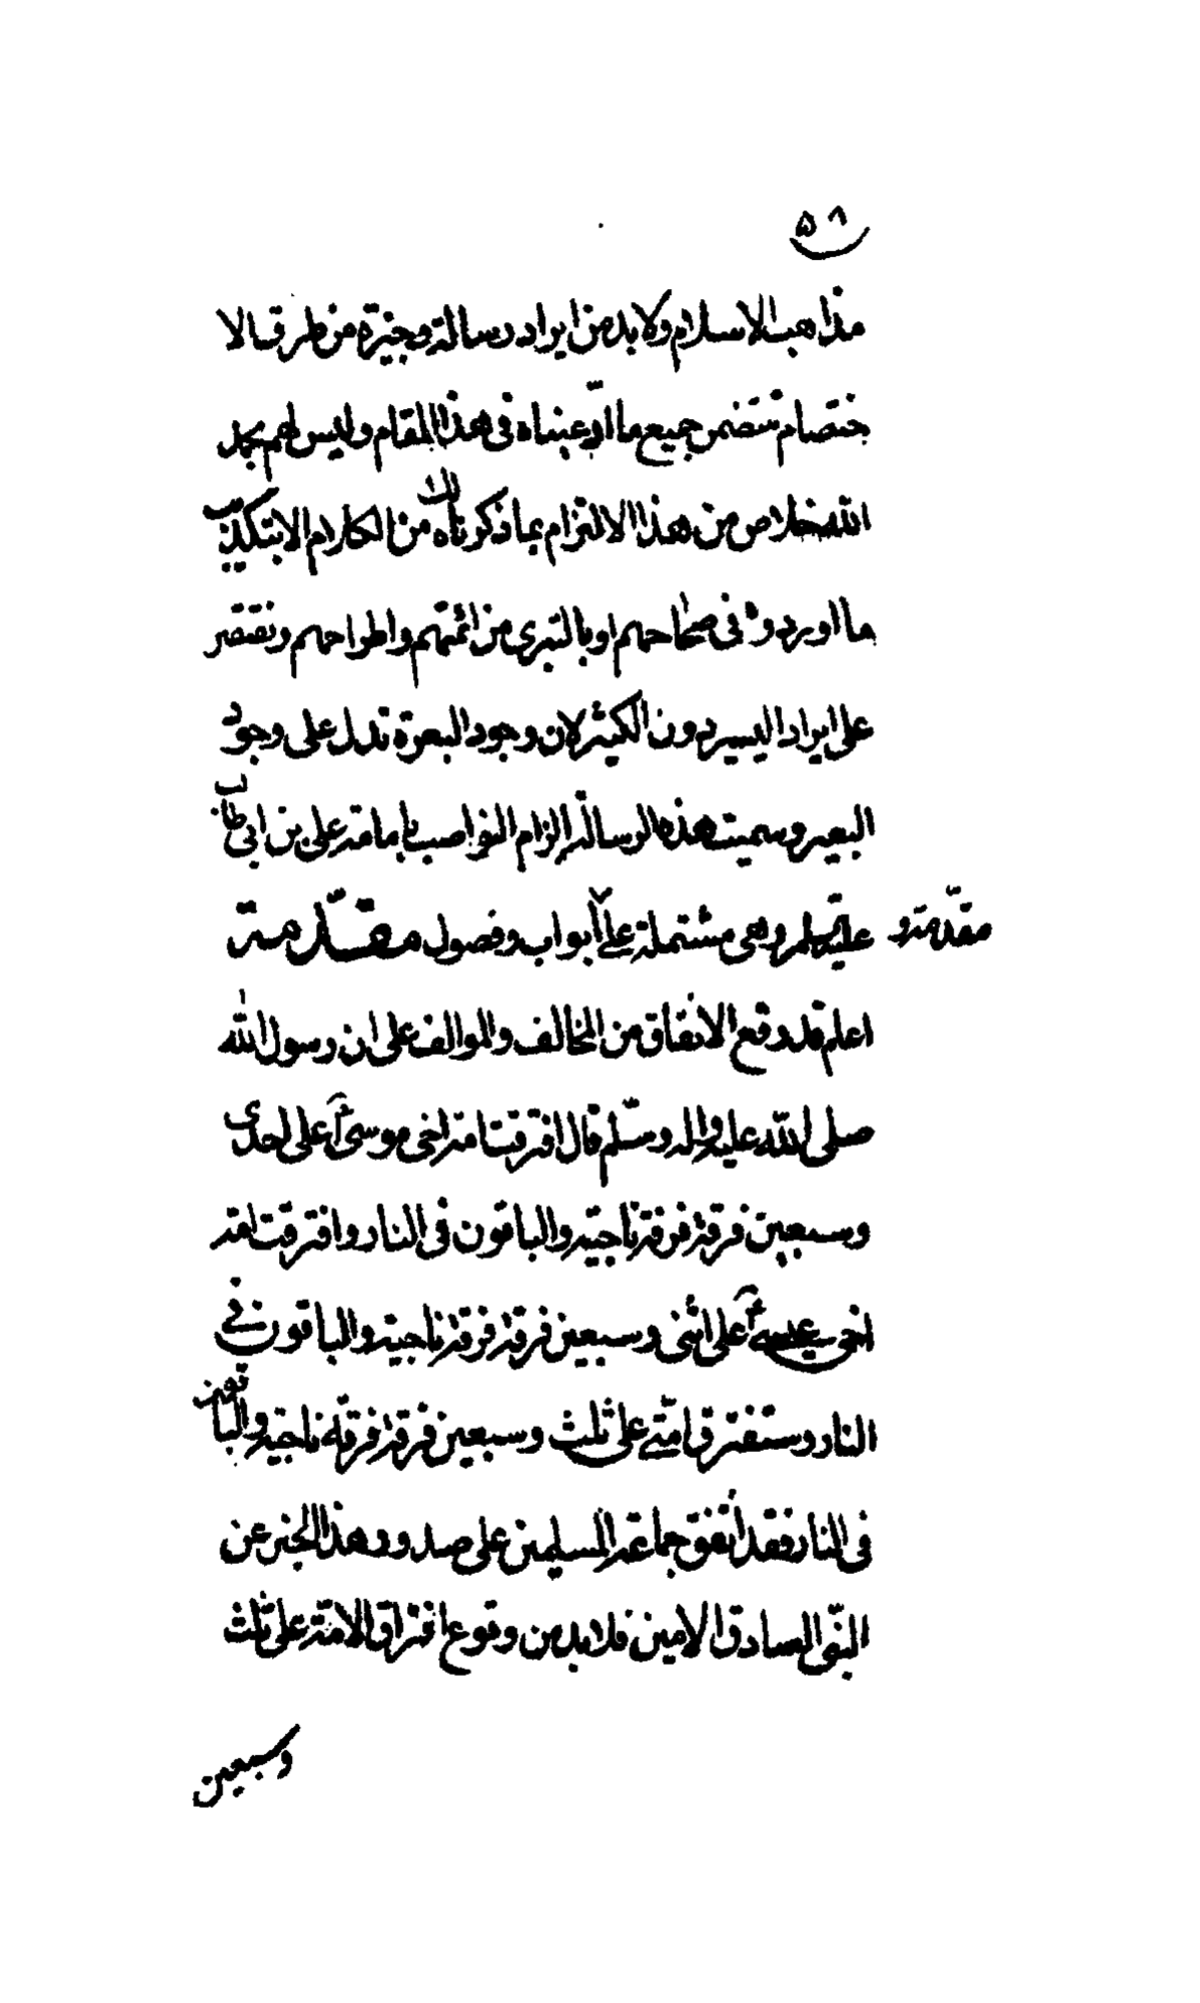 ٥٨
مذاهب الاسلام ولابد من ايراد رسالة وجيزة من طرق الا
ختصام تتضمن جميع ما ادّعيناه فى هذا المقام وليس لهم بحمد
الله خلاص من هذا الالتزام بما ذكرناه لك من الكلام الا بتكذيب
ما اوردوه فى صحاحهم او بالتبرى من ائمتهم واطراحهم ونقتصر
على ايراد اليسير دون الكثير لان وجود البعرة تدل على وجود
البعير وسميت هذه الرسالة الزام النواصب بامامة على بن ابى طالب
عليه السلم وهى مشتملة على ابواب وفصول مقدّمة
مقدّمة و
اعلم قد وقع الاتفاق من المخالف والموالف على ان رسول الله
صلى الله عليه واله وسلّم قال افترقت امة اخى موسىٰ على احدى
وسبعين فرقة فرقة ناجية والباقون فى النار وافترقت امة
اخى عيسىٰ على اثنى وسبعين فرقة فرقة ناجية والباقون فى
النار وستفترق امّتى على ثلث وسبعين فرقة فرقة ناجية والباقين
فى النار فقد اتفق جماعة المسلمين على صدور هذا الخبر عن
النبّى الصادق الامين فلابد من وقوع افتراق الامّة على ثلث
وسبعين